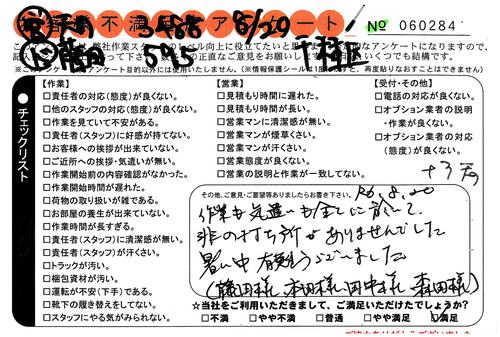 不満 アンケート
8/29
№ 060284
※このアンケート目的以外には使用いたしません。(※情報保護シールは1度めくると、再度貼りなおすことはできません)
チェックリスト
【作業】
□責任者の対応(態度)が良くない。
□他のスタッフの対応(態度)が良くない。
□作業を見ていて不安がある。
□責任者(スタッフ)に好感が持てない。
□お客様への挨拶が出来ていない。
□ご近所への挨拶・気遣いが無い。
□作業開始前の内容確認がなかった。
□作業開始時間が遅れた。
□荷物の取り扱いが雑である。
□お部屋の養生が出来ていない。
□作業時間が長すぎる。
□責任者(スタッフ)に清潔感が無い。
□責任者(スタッフ)が汗くさい。
□トラックが汚い。
□梱包資材が汚い。
□運転が不安(下手)である。
□靴下の履き替えをしてない。
□スタッフにやる気がみられない。
【営業】
□見積もり時間に遅れた。
□見積もり時間が長い。
□営業マンに清潔感が無い。
□営業マンが煙草くさい。
□営業マンが汗くさい。
□営業態度が良くない。
□営業の説明と作業が一致してない。
【受付・その他】
□電話の対応が良くない。
□オプション業者の説明
・作業が良くない。
□オプション業者の対応
(態度)が良くない。
その他、ご意見・ご要望等ありましたらお書き下さい。
R6.8.20
作業も気遣いも全てに於いて
非の打ち所がありませんでした
暑い中有難うございました
(藤田様、本田様、田中様、森田様)
☆当社をご利用いただきまして、ご満足いただけたでしょうか?
□不満 □やや不満 □普通 □やや満足 □満足